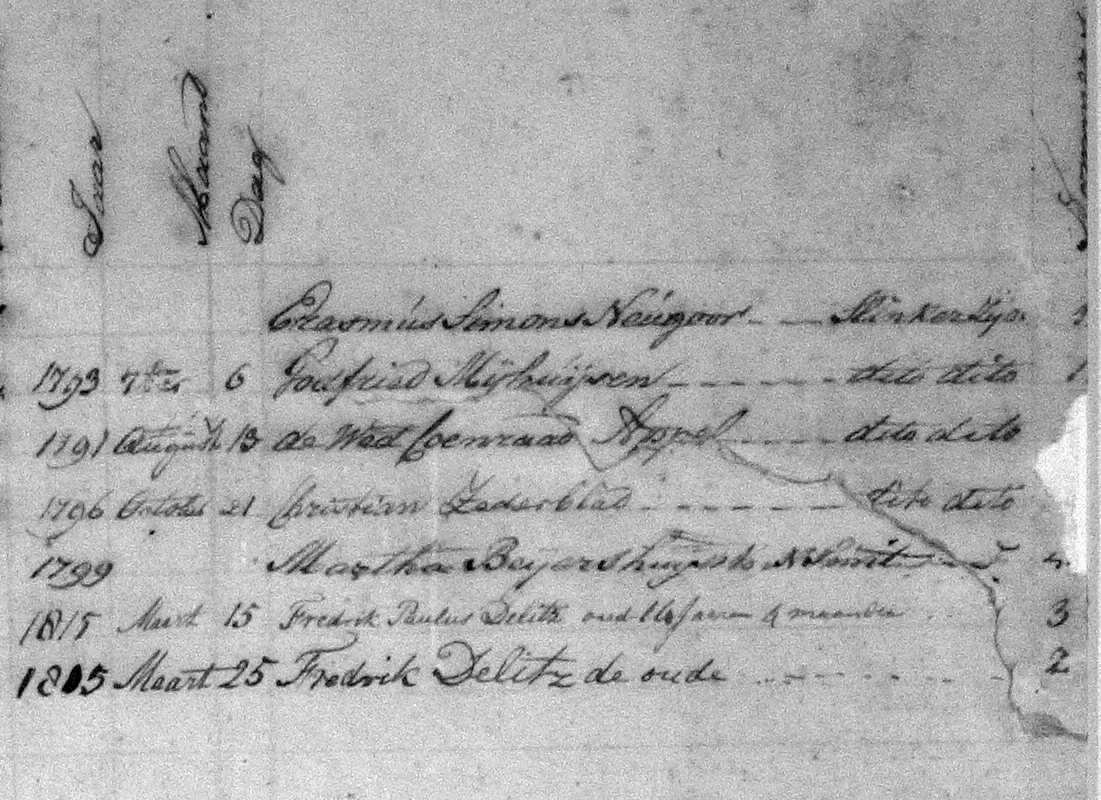 Jaar Maand Dag
Erasmus Simons Naúgoor Slinker Zyde
1793 7ber 6 Godfried Mijhuijsen dito dito
1791 Augúst 13 de Wed Coenraad Appel dito dito
1796 October 21 Christian Zederblad dito dito
1799 Martha Beyers
1815 Maart 15 Fredrik Paulus Delitz oud Jaeren 4 maanden 3
1805 Maart 25 Fredrik Delitz de oude 2